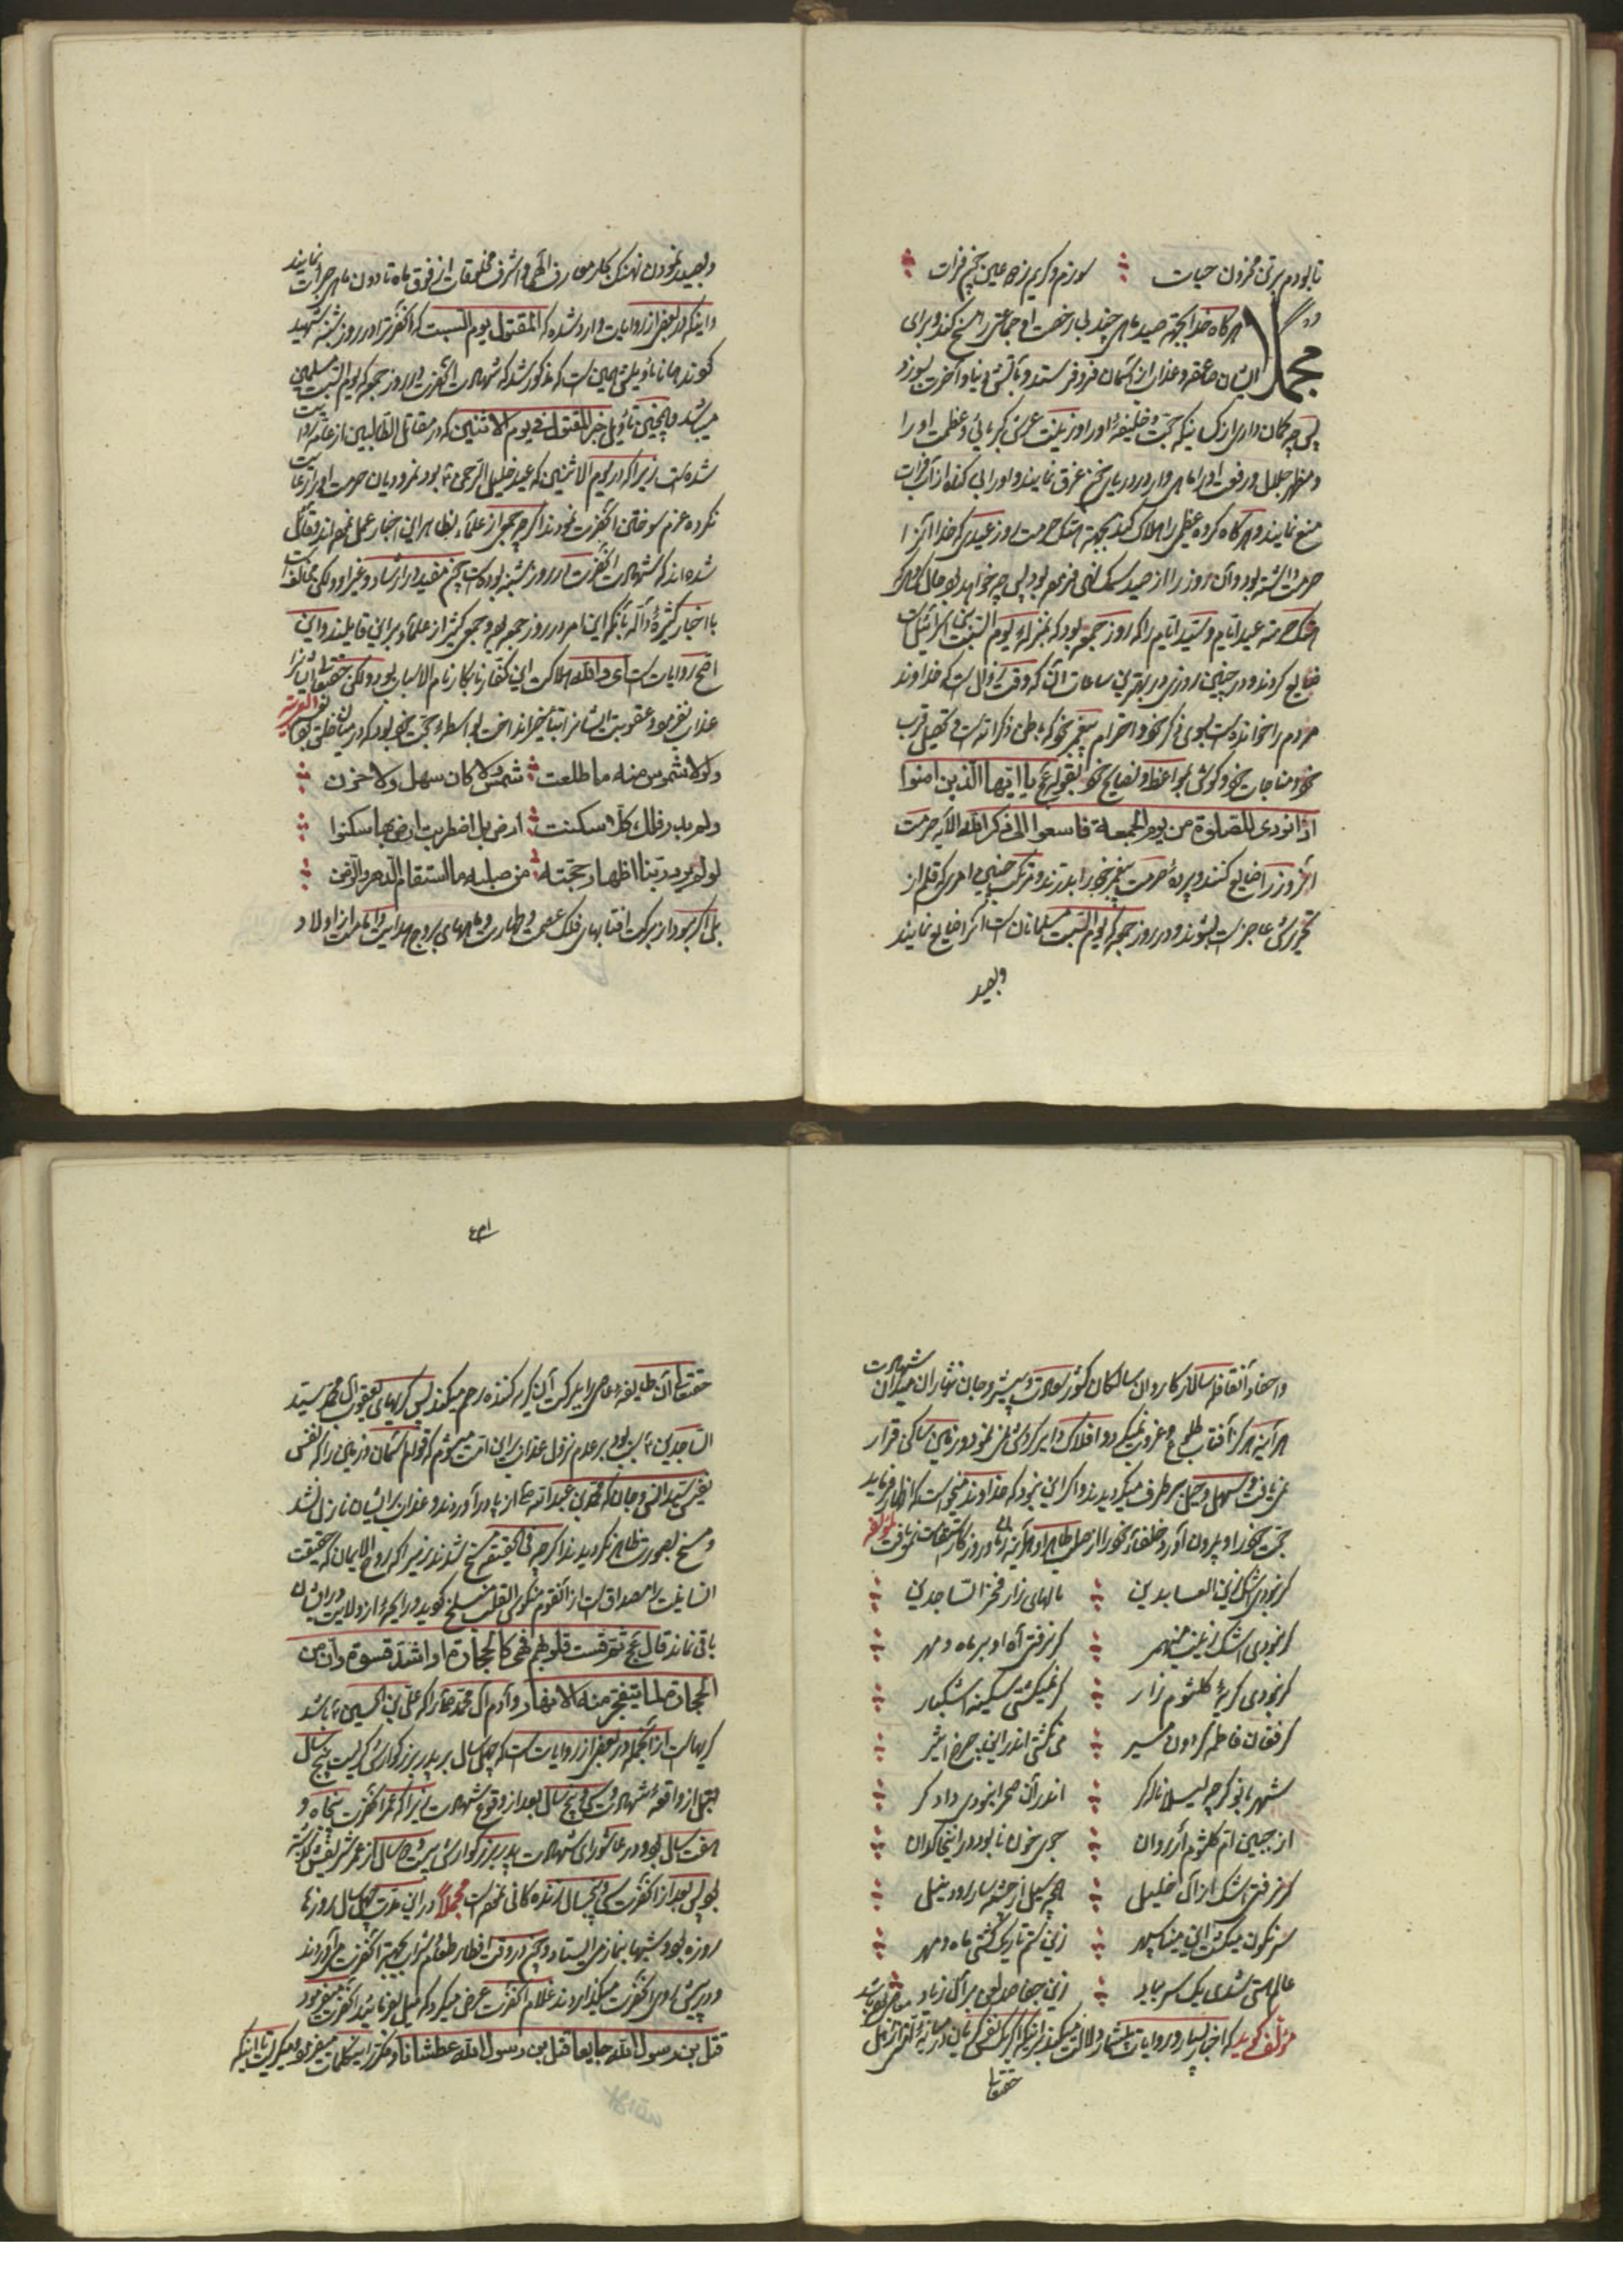 تا بودم برتن محزون حیات سوزم و کریم زجا عین چشم فرات
مجملا هر گاه خدا بجهة صید ماهی چند بی رخصت او جماعتی را مسخ کند و برای
ایشان صاعقه و عذاب از آسمان فرو فرستد و بآتش دنیا و آخرت بسوزد
پس چه کمان داری از کسانیکه حجت و خلیفهٔ او را و زینت عرش کبریائی و عظمت او را
و مظهر جلال و رفعت او را ماهی وار در دریای خون غرق نمایند و او را بی کناه از آب فرات
منع نمایند و هر کاه کروه عظیمی را هلاک کند بجهة هتک حرمت روز عیدی که خدا آنرا
حرمت داشته بود و آن روز را از صید سمک نهی فرموده بود پس چه خواهد بود حال
هتک حرمت عید ایام و سید ایام را که روز جمعه بود که بمنزلهٔ یوم السبت بنی اسرائیل است
ضایع کردند و در چنین روزی در بهترین ساعات آن که وقت زوال است که خداوند
مردم را خوانده است بسوی ذکر خود و احترام پیغمبر خود که باطن ذکر است و تحصیل قرب
خود و مناجات خود و کوش بمواعظ و نصایح خود بقوله عج یا ایها الذین امنوا
اذا نودی للصلوة من یوم الجمعة فاسعوا الی ذکر الله الآیه حرمت
آنروز را ضایع کنند و پردهٔ حرمت پیغمبر خود را بدرند و مرتکب چنین امری که قلم از
تحریرش عاجز است بشوند و در روز جمعه که یوم السبت مسلمانان است آنرا ضایع نمایند
وبصید
وبصید نمودن نهنک کلر معارف الهی و اشرف مخلوقات از فوق ماه تا دون ماهی جرات نمایند
و اینکه در بعضی از روایات وارد شده که المقتول یوم السبت که آنحضرت را در روز شنبه شهید
کردند همانا تأویلش همین است که مذکور شد که شهادت آنحضرت در روز جمعه که یوم السبت مسلمین
میباشد و همچنین تأویل خبر المقتول فی یوم الاثنین که در مقاتل الطالبین از عامه روایت
شده است زیرا که در یوم الاثنین که عید خلیل الرحمن ع بود نمرودیان حرمت او را رعایت
نکرده عزم سوختن آنحضرت نمودند اکرچه جمعی از علماء بظاهر این اخبار عمل نموده اند و قائل
شده اند که شهادت آنحضرت در روز شنبه بوده است چون مفید در ارشاد و غیر او و لکن مخالف است
با اخبار کثیرهٔ دآله بآنکه این امر در روز جمعه بود و جمعی کثیر از علماء بر این قایلند و این
اصح روایات است ای والله هلاکت این کفار نابکار تمام الاسباب بود و لکن حقتعالی ایشانرا
عذاب نفرمود و عقوبت ایشانرا بتأخیر انداخت بواسطهٔ حجت خود بود که در میان خلق بود
ولولا شموس منه ما طلعت شمس ولا کان سهل ولا حزن
ولم یدر فلک کلا سکنت ارض بل اضطربت ارض بها سکنوا
لو لم یرد ربنا اظهار حجته من صلبه ما استقام الدهر والزمن
بلی اکر نبود از برکت آفتابهای فلک عصمت و طهارت و ماههای بروج هدایت و امامت از اولاد
۴۳۱
واحفاد آنقافله سالار کاروان سالکان کشور سعادت و پیشرو جان نثاران میدان شهادت
هر آینه هرکز آفتاب طلوع و غروب نمیکرد و افلاک دایر کردش نمی نمود و زمین ساکن قرار
نمی یافت و سهل و جبل بر طرف میکردیدند و اکر این نبود که خداوند میخواست که اظهار فرماید
حجت خود را و بیرون آورد خلفاء خود را از صلب طاهر او هر آینه زمان و روزکار استقامت نمی یافت لمؤلفه
کر نبودی اشک زین العابدین نالهای زار فخر الساجدین
کر نبودی اشک زینب منهمر کر نرفتی آه او بر ماه و مهر
کر نبودی کریهٔ کلثوم زار کر نمیکشتی سکینه اشکبار
کر فغان فاطمه کردون مسیر می نکشتی اندر این چرخ اثیر
شهربانو کرچه لیسلا ناله کر اندر آن صحرا نبودی دادکر
از جبین ام کلثوم ار روان جوی خون نابود در اینخاکدان
کر نرفتی اشک از آل خلیل همچو سیل از چشمه سار رود نیل
سرنکون میکشت این مینا سپهر زین ستم تاریک کشتی ماه و مهر
عالم هستی شدی یک سر بباد زین جفا صد لعن بر آل زیاد
مؤلف کوید که اخبار بسیار و روایات بیشمار دلالت میکند بر اینکه اکر یک نفس کریان در میان
حقتعالی
حقتعالی آن طایفه عاصی را ببرکت آن کریه کننده رحم میکند پس کریهای یعقوب آل محمد سید
الساجدین ع سبب بود بر عدم نزول عذاب بر این امت میشوم که قوام آسمان و زمین را که نفس
نفیس سید انس و جان که محمد بن عبدالله ص از پا در آوردند و عذاب بر ایشان نازل نشد
و مسخ بصورت ظاهر نکردیدند اکرچه فی الحقیقة مسخ شدند زیرا که روح الایمان که حقیقت
انسانیت را مصداق است از آنقوم منکوس القلب منسلخ کردید و رایحهٔ از ولایت در ایشان
باقی نماند قال عج ثم قست قلوبهم فهی کالحجارة او اشد قسوة و ان من
الحجارة لما یتفجر منه الانهار و آدم آل محمد ص را که علی بن الحسین ع باشد
کریهاست از آنجمله در بعضی از روایات است که چهل سال بر پدر بزرکوارش کریست پنج سال
قبل از واقعهٔ شهادت و سی و پنج سال بعد از وقوع شهادت زیرا که عمر آنحضرت پنجاه و
هفت سال بود و در عاشورای شهادت پدر بزرکوارش بیست و دو سال از عمر شریفش کذشته
بود پس بعد از آنحضرت سی و پنجسال زنده کانی نموده است مجملا در این مدت چهل سال روزها
روزه بود و شبها بنماز می ایستاد و چون در وقت افطار طعام و شراب بجهة آنحضرت می آوردند
و در پیش روی آنحضرت میکذاردند غلام آنحضرت عرض میکرد که میل بفرمائید آنحضرت میفرمود
قتل بن رسول الله جایعا قتل بن رسول الله عطشانا و مکرر این کلمات میفرمود و میکریست تا اینکه